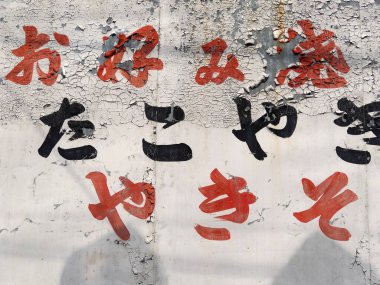 お好み焼
たこやき
やきそ